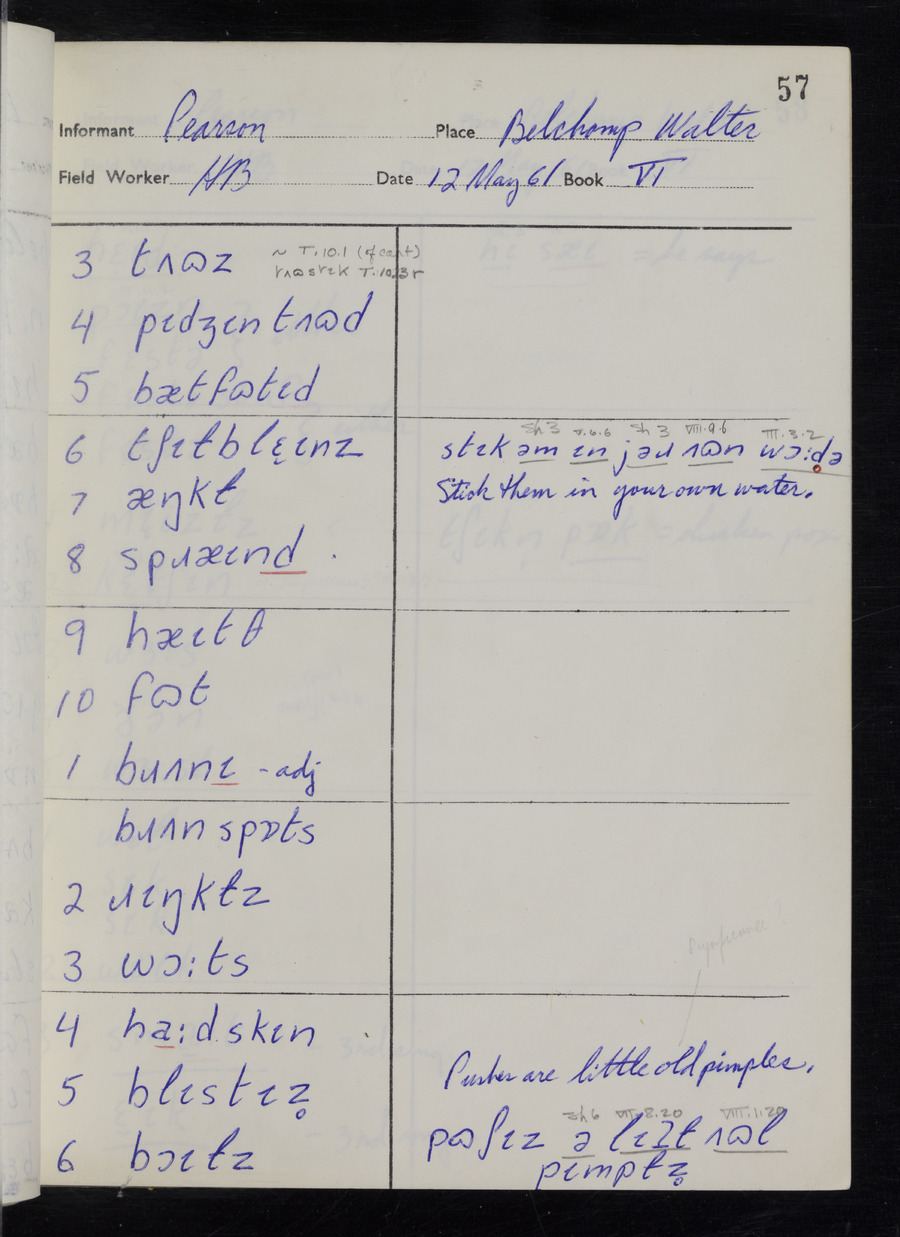 57
Informant Pearson Place Belchamp Walter
Field Worker HB Date 12 May 61 Book VI
3 tʌɷz ~ T.10.1 (of cart)
T.10.3
4 pɪdʒɪn tʌɷd
5 bætfɷtɪd
6 tʃɪɫblɛ̣ɪnz
7 æŋkɫ
8 spɹæɪnd
9 hæɪtθ
10 fɷt
1 bɹʌnɪ - adj
bɹʌn spɒts
2 ɹɪŋkɫz
3 wɔ:ts
4 ha:d skɪn
5 blɪstɪz̥
6 bɔɪɫz
Sh 3 V.6.6 Sh 3 VIII.9.6 III.3.2
stɪk əm ɪn jəɹ ʌɷn wɔ:d̥ə
Stick them in your own water.
Significance?
Pushes are little old pimples.
Sh 6 VII.8.20 VIII.1.20
pɷʃɪz ə lɪʔɫ ʌɷl
pɪmpɫz̥